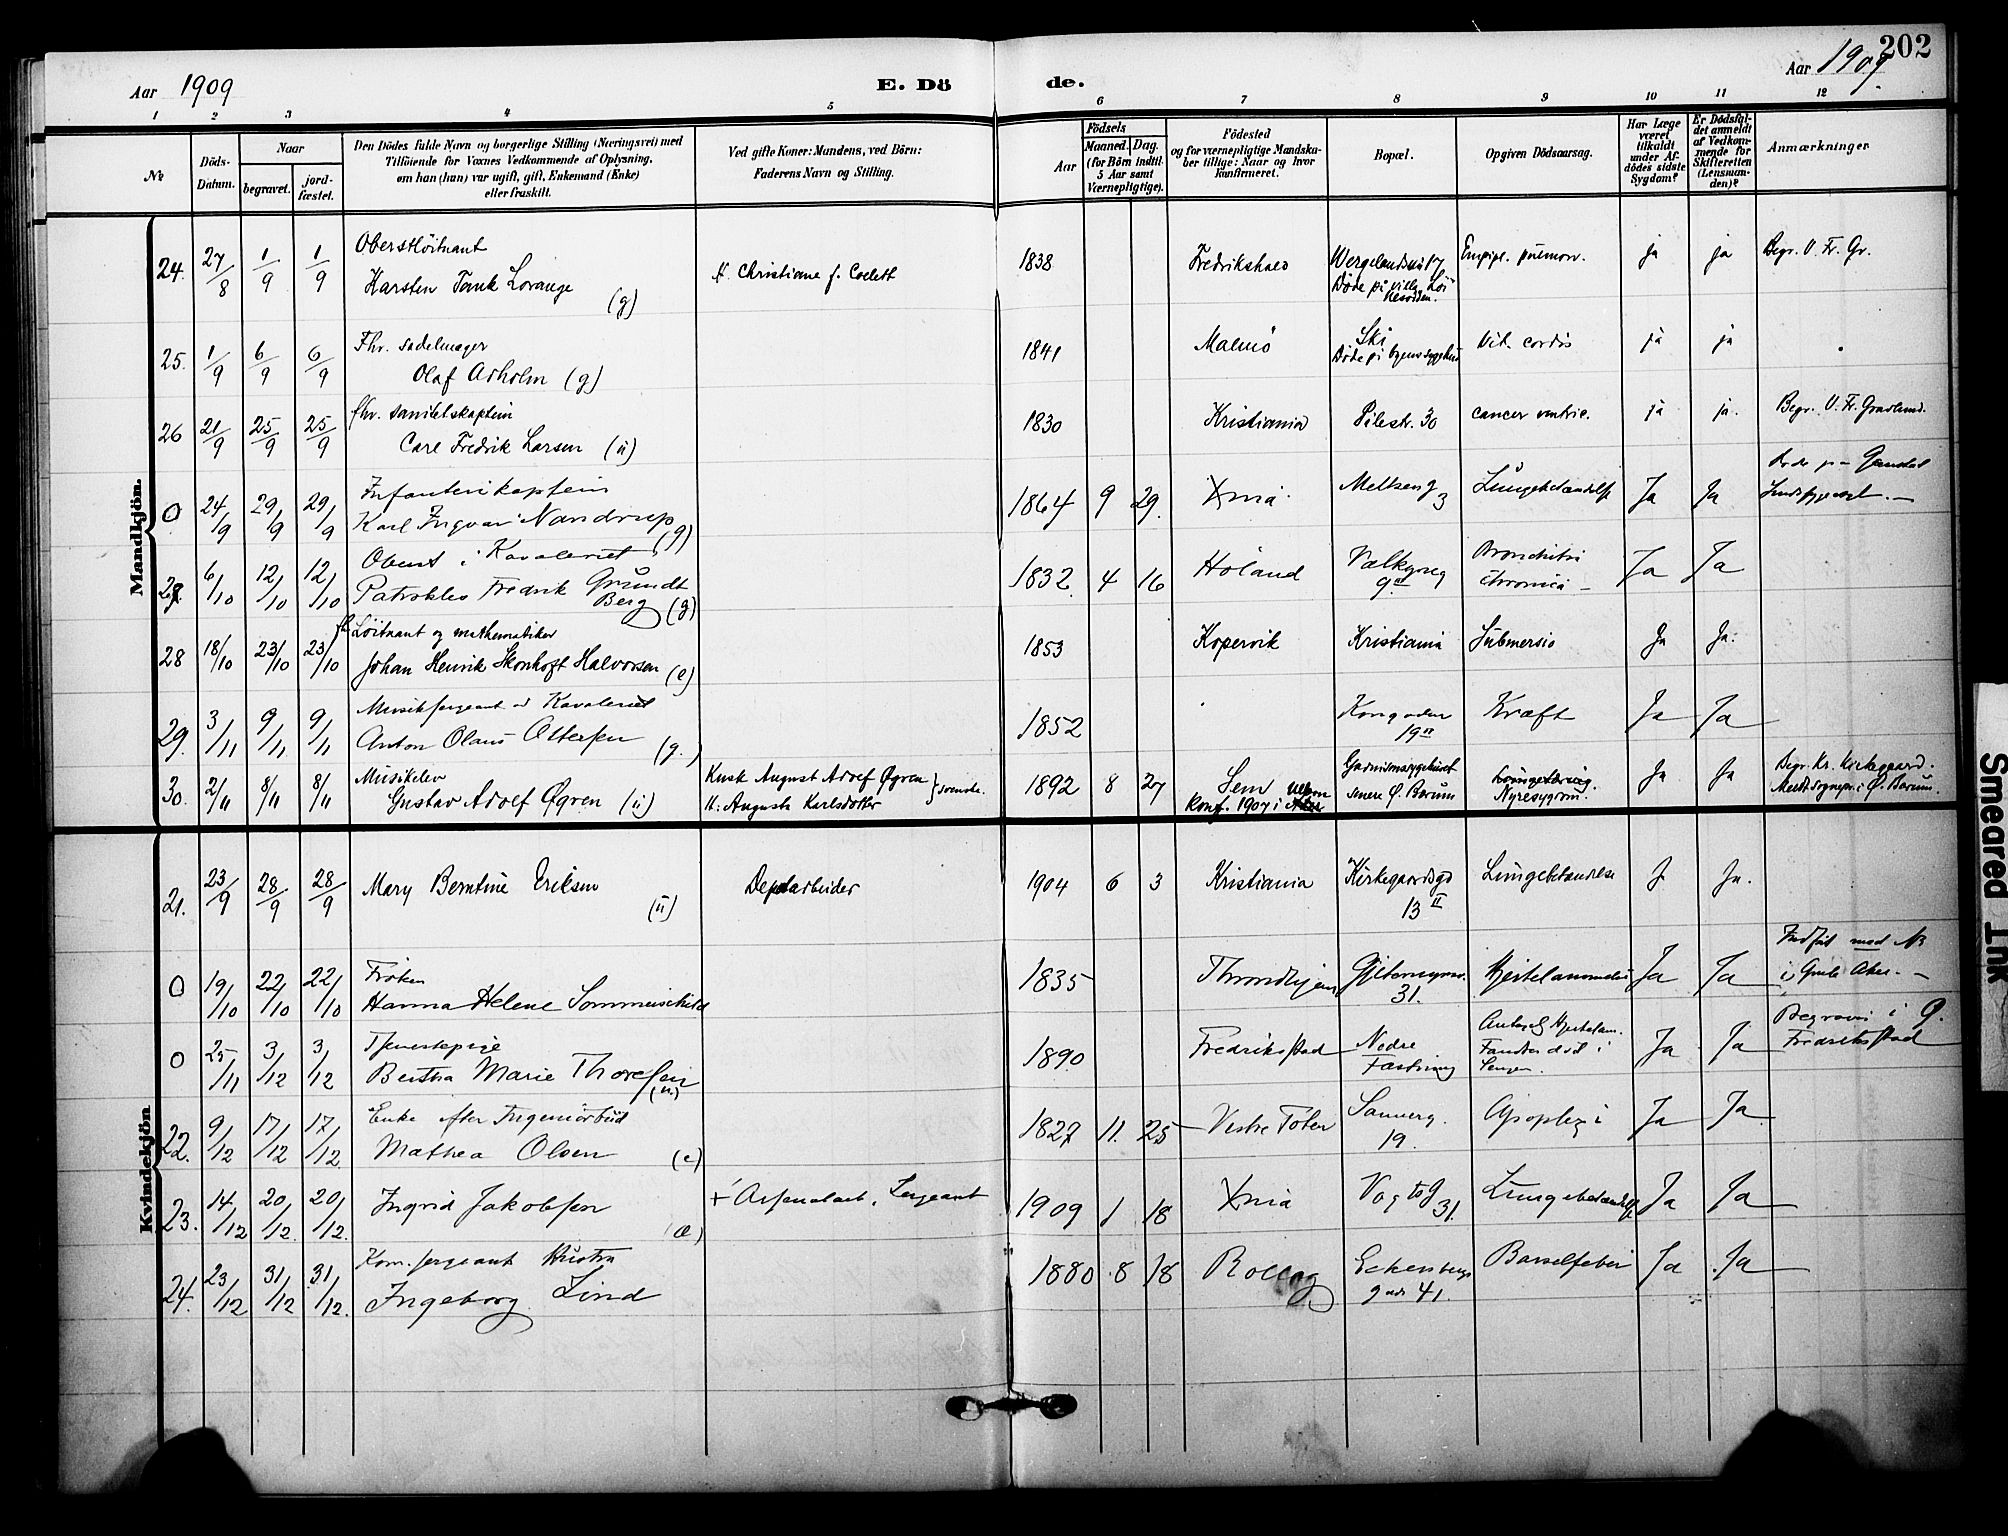 202
Aar 1909
E. Döde.
Aar 1909.
1 2 3 4 5 6 7 8 9 10 11 12
№
Döds-Datum.
Naar
begravet.
jord-fæstet.
Den Dödes fulde Navn og borgerlige Stilling (Næringsvei) med
Tilföiende for Voxnes Vedkommende af Oplysning,
om han (hun) var ugift, gift, Enkemand (Enke)
eller fraskilt.
Ved gifte Koner: Mandens, ved Börn:
Faderens Navn og Stilling.
Födsels
Aar
Maaned. Dag.
(for Börn indtil
5 Aar samt
Værnepligtige).
Födested
og for værnepligtige Mandska-
ber tillige: Naar og hvor
konfirmeret.
Bopæl.
Opgiven Dödsaarsag.
Har Læge
været
tilkaldt
under Af-
dödes sidste
Sygdom?
Er Dödsfal-
det anmeldt
af Vedkom-
mende for
Skifteretten
(Lensman-
den)?
Anmærkninger
Mandkjön.
24. 27/8 1/9 1/9 Oberstløitnant
Karsten Tank Lorange (g)
H. Christiane f. Collett
1838 Fredrikshald
Døde på villa
ja ja Begr. V. Fr. Gr.
25. 1/9 6/9 6/9 Fhv. sadelmager
Olaf Arholm (g)
1841 Malmö Ski
Døde på byens sygehus
Vit. cordis ja ja
26 21/9 25/9 25/9 fhv. sanitetskaptein
Carl Fredrik Larsen (u)
1830 Kristiania Pilestr. 30 cancer ventric. ja ja. Begr. V. Fr. Gravlund.
0 24/9 29/9 29/9 Infanterikaptein
Karl Ingvar Nandrup (g)
1864 9 29. Xnia Meltzersg 3 Lungebetændelse Ja Ja
27. 6/10 12/10 12/10 Oberst i Kavaleriet
Patroklos Fredrik Grundt
Berg (g)
1832. 4 16 Höland
Bronchitis
chronica Ja Ja
28 18/10 23/10 23/10 fh Löitnant og mathematiker
Johan Henrik Skonhoft Halvorsen (e)
1853 Kopervik Kristiania Submersio Ja Ja.
29. 3/11 9/11 9/11 Musiksergeant v Kavaleriet
Anton Olaus Ottersen (g.)
1852 19 Kræft Ja Ja
30. 2/11 8/11 8/11 Musikelev
Gustav Adolf Øgren (u)
Kusk August Adolf Øgren
H. Augusta Karlsdotter } svenske.
1892 8 27 Sem
konf. 1907 i
Garnisonssygehuset
senere Ø. Bærum
Nyresygdom. Ja Ja Begr. Kr. Kirkegaard.
Kvindekjön.
21. 23/9 28/9 28/9 Mary Berntine Eriksen (u)
Depotarbeider
1904 6 3 Kristiania Kirkegaardsgd
13 II
Lungebetændelse J. Ja.
0 19/10 22/10 22/10 Fröken
Hanna Helene Sommerschild
1835 Throndhjem
31. Hjertelammelse Ja Ja
0 25/11 3/12 3/12 Tjenestepige
Bertha Marie Thoresen (u.)
1890 Fredriksstad Nedre
Fæstning
Antag. Hjertelam.
Fandtes död i
Sengen. Ja Ja Begraves i G.
Fredriksstad
22. 9/12 17/12 17/12 Enke efter Ingeniörbud
Mathea Olsen (e)
1827 11. 25 Vestre Toten Sannerg.
19. Apoplexi Ja Ja
23. 14/12 20/12 20/12. Ingrid Jakobsen
+ Arsenalarb. Sergeant
1909 1 18 Xnia Vogtsg 31. Lungebetændelse Ja Ja
24. 23/12 31/12 31/12. Kom. sergeant Hustru
Ingeborg Lind
1880 8 18 Rollag Eckersbergs
gade 41. Barselfeber Ja Ja
Smeared Ink